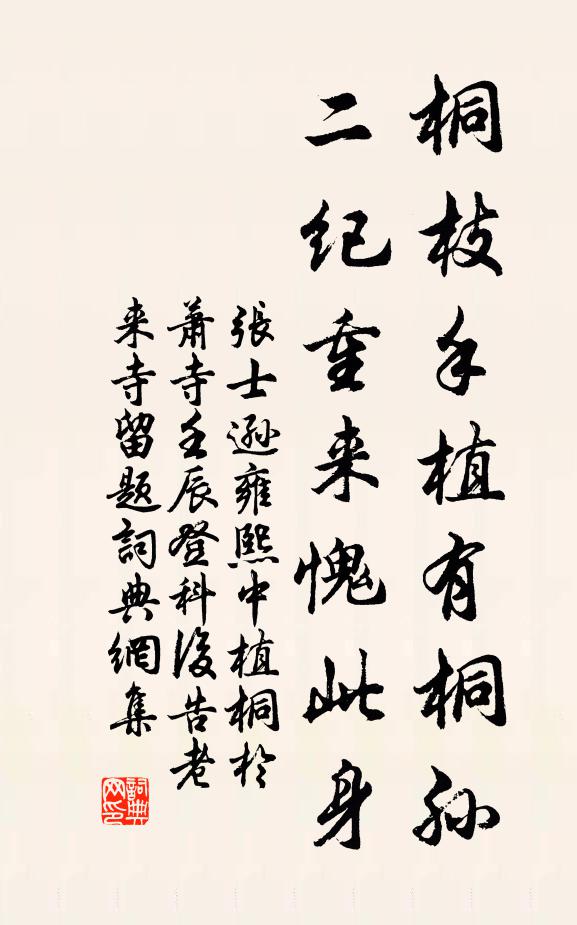 桐枝手植有桐孙
二纪重来愧此身
張士遜雍熙中植桐於
萧寺壬辰登科後告老
来寺留题詞典網集
詞典网印